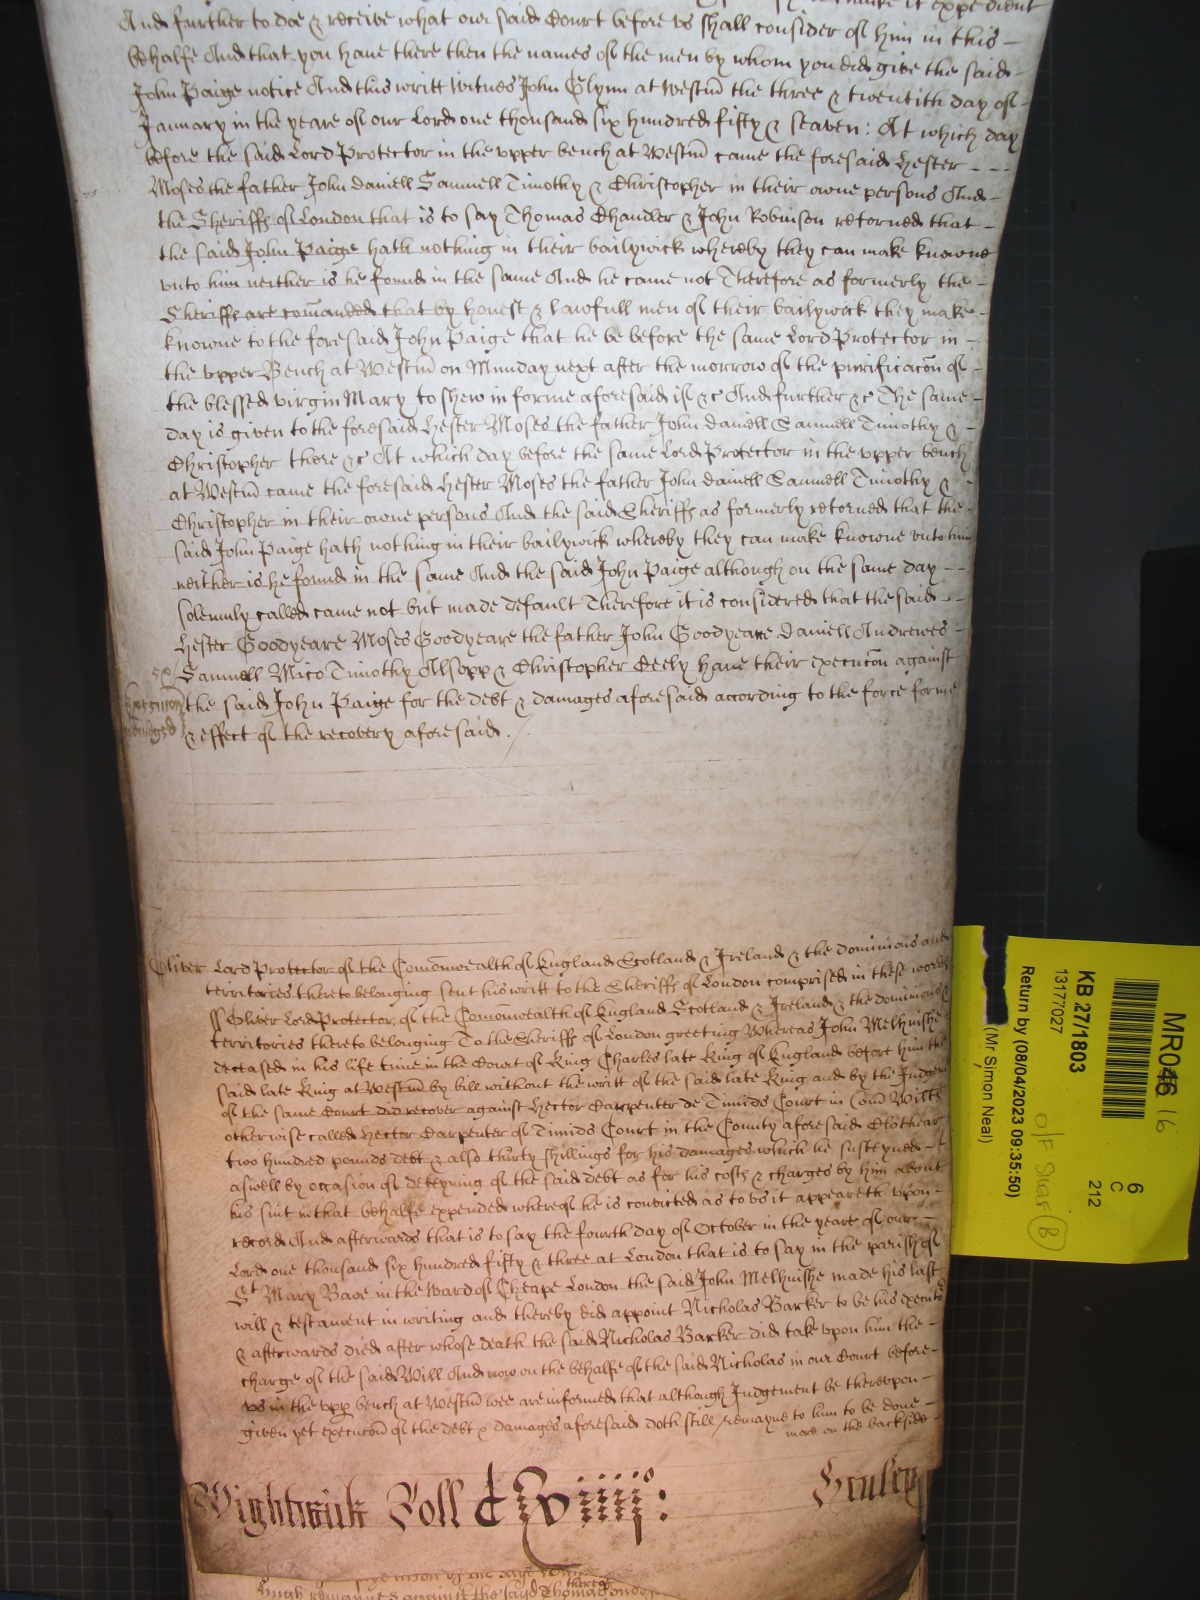 make it expedient
And further to doe & receive what our said Court before us shall consider of him in this
behalfe And that you have there then the names of the men by whom you did give the said
John Paige notice And this writt witnes John Glynn at Westm̄ the three & twentith day of
January in the yeare of our Lord one thousand six hundred fifty & seaven: At which day
before the said Lord Protector in the upper bench at Westm̄ came the foresaid Hester
Moses the father John Daniell Samuell Timothy & Christopher in their owne persons And
the Sheriffs of London that is to say Thomas Chandler & John Robinson retorned that
the said John Paige hath nothing in their bailywick whereby they can make knowne
unto him neither is he found in the same And he came not Therefore as formerly the
Sheriffs are com̄anded that by honest & lawfull men of their bailywick they make
knowne to the foresaid John Paige that he be before the same Lord Protector in
the upper Bench at Westm̄ on Munday next after the morrow of the purificac̄on of
the blessed virgin Mary to shew in forme aforesaid if &c And further &c The same
day is given to the foresaid Hester Moses the father John Daniell Samuell Timothy &
Christopher there &c At which day before the same Lord Protector in the upper bench
at Westm̄ came the foresaid Hester Moses the father John Daniell Samuell Timothy &
Christopher in their owne persons And the said Sheriffs as formerly retorned that the
said John Paige hath nothing in their bailywick whereby they can make knowne unto him
neither is he found in the same And the said John Paige although on the same day
solemnly called came not but made default Therefore it is considered that the said
Hester Goodyeare Moses Goodyeare the father John Goodyeare Daniell Andrewes
Samuell Mico Timothy Allsopp & Christopher Ceely have their execuc̄on against
the said John Paige for the debt & damages aforesaid according to the force forme
& effect of the recovery aforesaid.
Oliver Lord Protector of the Com̄onwealth of England Scotland & Ireland & the dominions and
territories thereto belonging sent his writt to the Sheriffs of London comprised in these words
ss Oliver Lord Protector of the Com̄onwealth of England Scotland & Ireland & the dominions &
territories thereto belonging To the Sheriffs of London greeting Whereas John Melhuishe
deceased in his life time in the Court of King Charles late King of England before him the
said late King at Westm̄ by bill without the writt of the said late King and by the Judgem
of the same Court did recover against Hector Carpenter de Timids Court in Com̄ Wilts
otherwise called Hector Carpenter of Timids Court in the County aforesaid Clothear
two hundred pounds debt & also thirty shillings for his damages which he susteyned
aswell by occasion of deteyning of the said debt as for his costs & charges by him about
his suit in that behalfe expended whereof he is convicted as to us it appeareth upon
record And afterwards that is to say the fourth day of October in the yeare of our
Lord one thousand six hundred fifty & three at London that is to say in the parish of
St Mary Bowe in the Ward of Cheape London the said John Melhuishe made his last
will & testament in writing and thereby did appoint Nicholas Barker to be his executo
& afterwards died after whose death the said Nicholas Barker did take upon him the
charge of the said Will And now on the behalfe of the said Nicholas in our Court before
us in the upp bench at Westm̄ wee are informed that although Judgement be thereupon
given yet execuc̄on of the debt & damages aforesaid doth still remayne to him to be done
more on the backside
Wightwick Roll
Henley
against the said Thomas
MR046 16
KB 27/1803
13177027
Return by (08/04/2023 09:35:50)
(Mr Simon Neal)
6
C
212